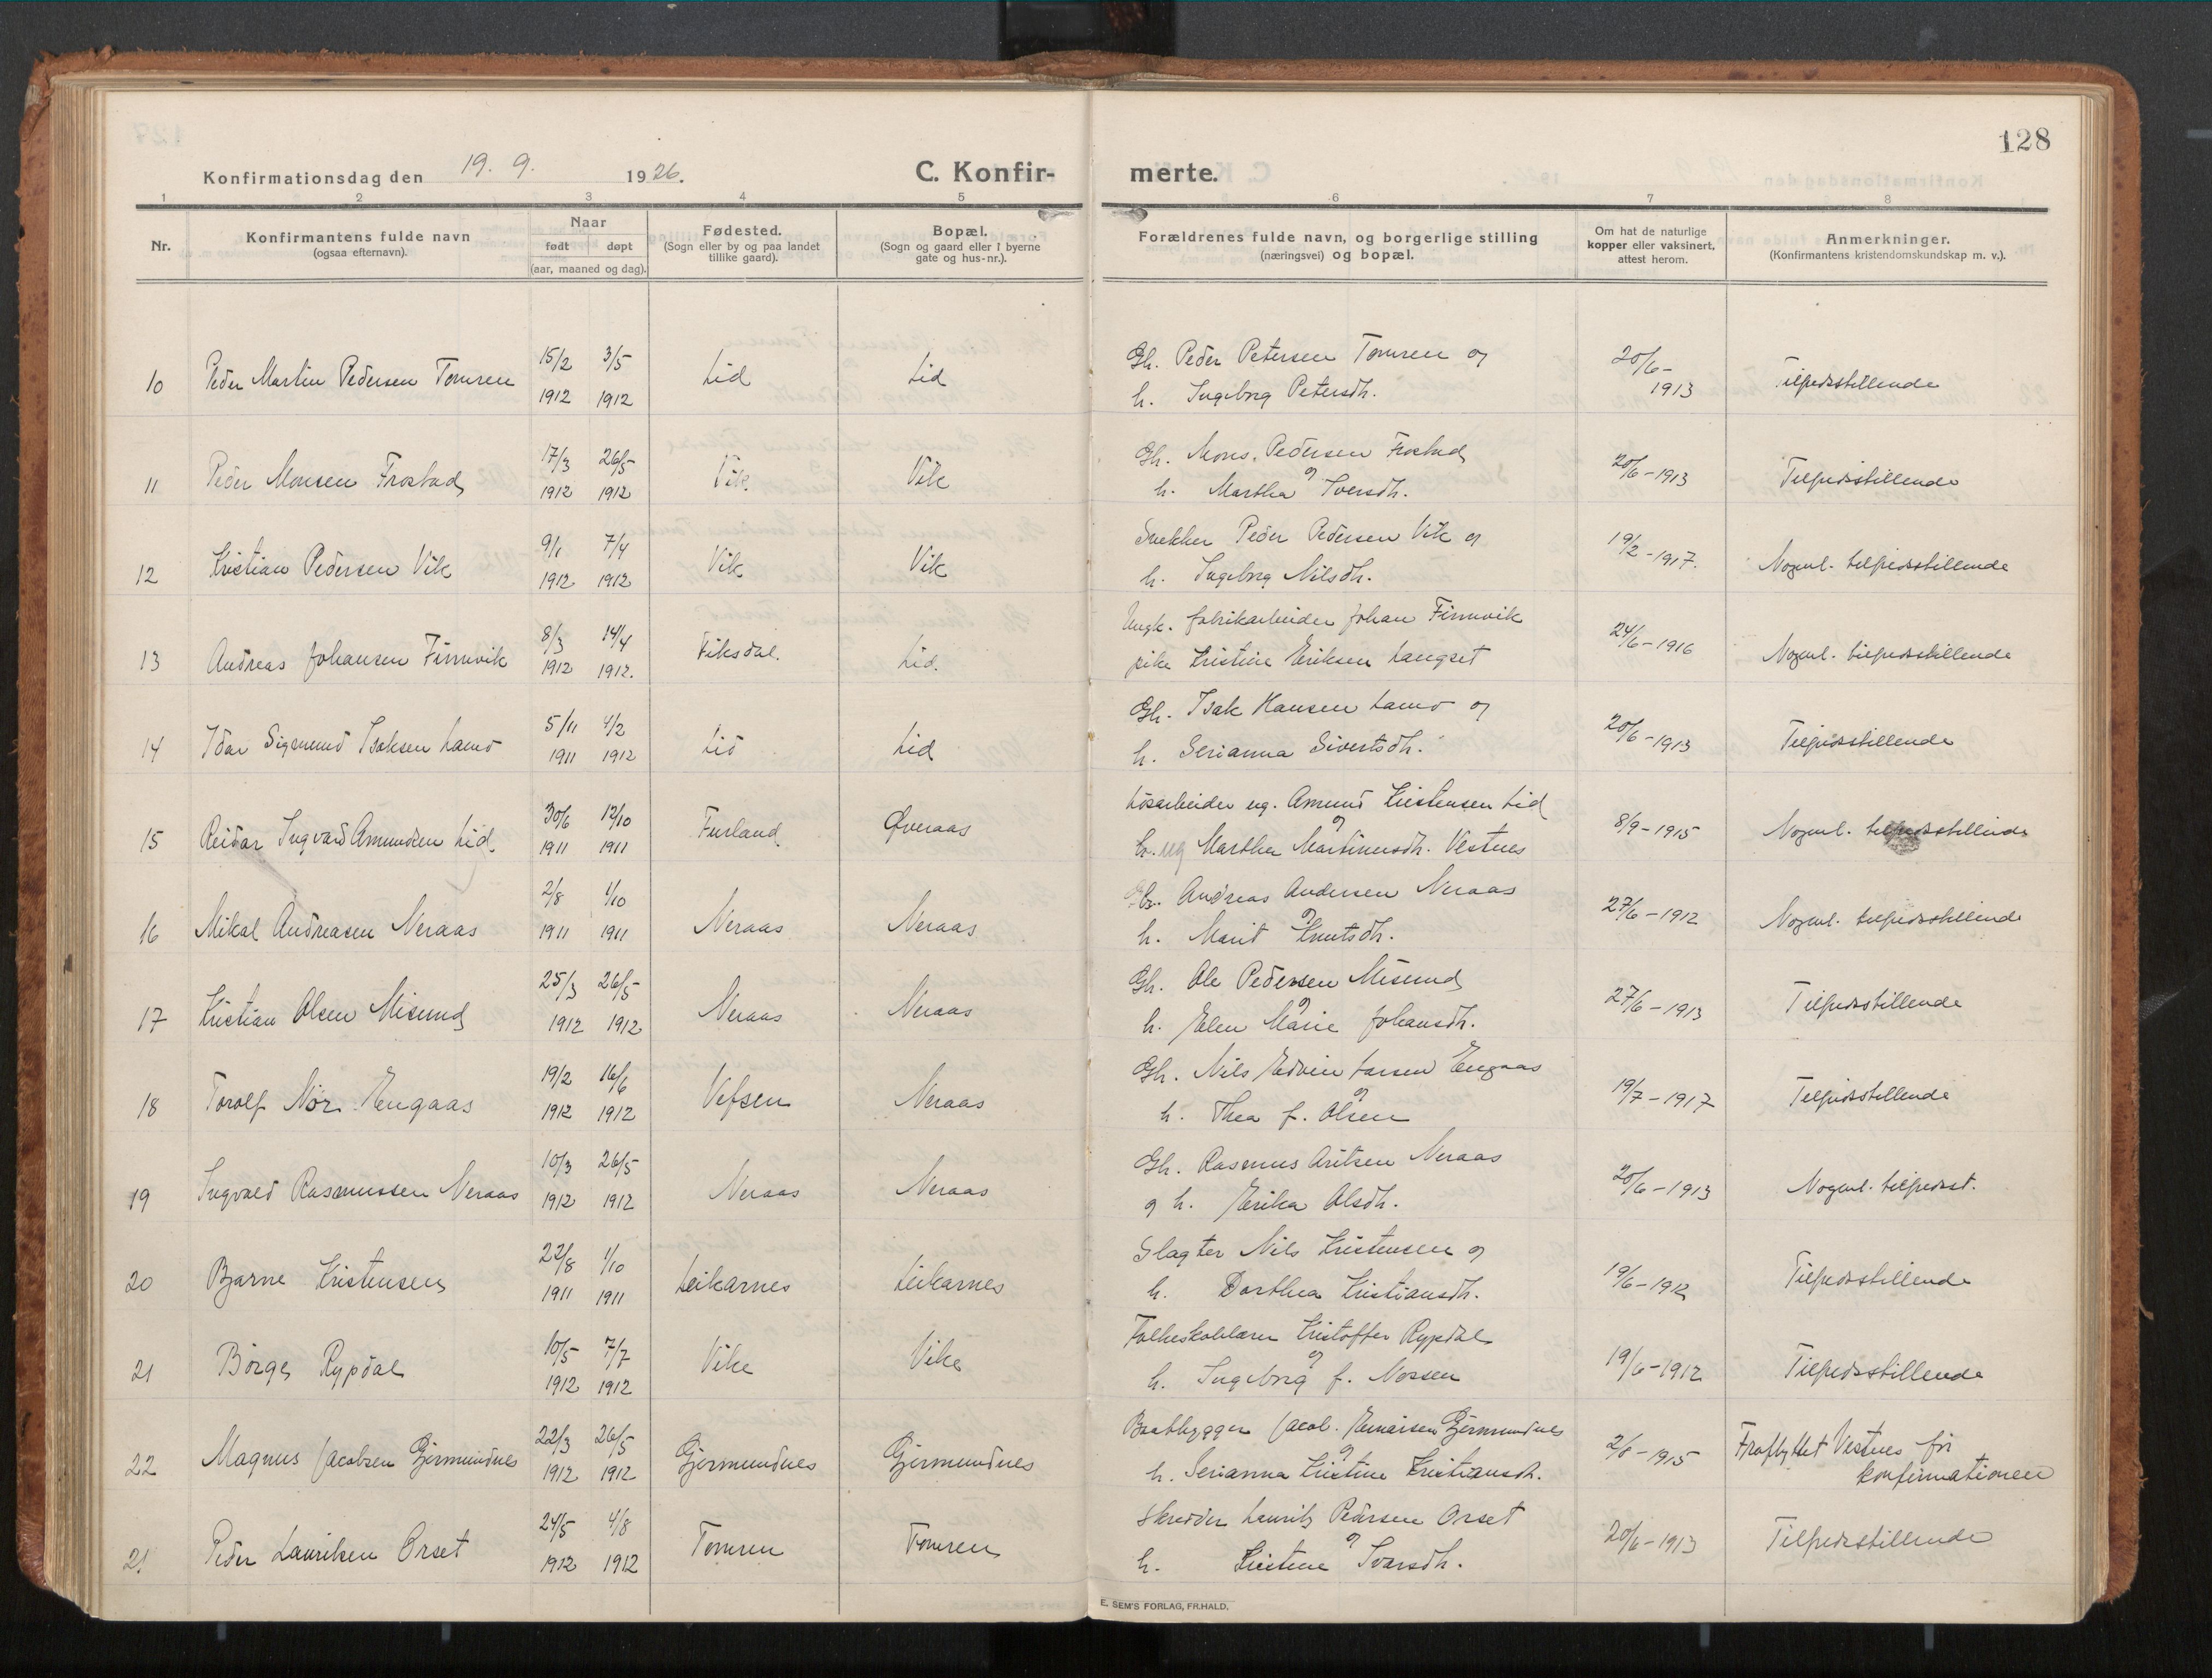 128
Konfirmationsdag den 19. 9. 1926.
C. Konfir-
merte.
1 2 3 4 5 6 7 8
Nr.
Konfirmantens fulde navn
(ogsaa efternavn).
Naar
født døpt
(aar, maaned og dag).
Fødested.
(Sogn eller by og paa landet
tillike gaard).
Bopæl.
(Sogn og gaard eller i byerne
gate og hus-nr.).
Forældrenes fulde navn, og borgerlige stilling
(næringsvei) og bopæl.
Om hat de naturlige
kopper eller vaksinert,
attest herom.
Anmerkninger.
(Konfirmantens kristendomskundskap m. v.).
15/2 3/5 Gh. Peder Petersen Tomren og 20/6-
10 Peder Martin Pedersen Tomren Lid Lid Tilfredsstillende
1912 1912 h. Ingeborg Petersdh. 1913
17/3 26/5 Gh. Mons. Pedersen Frostad
11 Peder Monsen Frostad Vik Vik og 20/6-1913 Tilfredsstillende
1912 1912 h. Martha Iversdh.
9/1 7/4 Snekker Peder Pedersen Vik og
12 Kristian Pedersen Vik Vik Vik 19/2-1917. Nogenl. tilfredsstillende
1912 1912 h. Ingeborg Nilsdh.
8/3 14/4 Ungk. fabrikarbeider Johan Finnvik
13 Andreas Johansen Finnvik Viksdal. Lid. 24/6-1916 Nogenl. tilfredsstillende
1912 1912. pike Kristine Eriksen Langset
5/11 4/2 Gh. Isak Hansen Lamo og
14 Idar Sigmund Isaksen Lamo Lid Lid 20/6-1913 Tilfredsstillende
1911 1912 h. Serianna Sivertsdh.
30/6 12/10 Løsarbeider ug. Amund Kristensen Lid
15 Reidar Ingvard Amundsen Lid. Furland Øveraas og 8/9-1915 Nogenl. tilfredsstillende
1911 1911 ug Martha Martinusdh. Vestnes
2/8 1/10 Andreas Andersen Neraas
16 Mikal Andreasen Neraas Neraas Neraas og 27/6-1912 Nogenl. tilfredsstillende
1911 1911 h. Marit Knutsdh.
25/3 26/5 Gh. Ole Pedersen Misund
17 Kristian Olsen Misund Neraas Neraas og 27/6-1913 Tilfredsstillende
1912 1912 h. Elen Marie Johansdh.
19/2 16/6 Gh. Nils Edvin Larsen Engaas
18 Torolf Nör. Engaas Vefsen Neraas og 19/7-1917 Tilfredsstillende
1912 1912 h. Thea f. Olsen
10/3 26/5 Gh. Rasmus Aritsen Neraas
19 Ingvald Rasmussen Neraas Neraas Neraas 20/6-1913 Nogenl. tilfredsst.
1912 1912 og h. Erika Olsdh.
22/8 1/10 Slagter Nils Kristensen og
20 Bjarne Kristensen Leikarnes Leikarnes 19/6-1912 Tilfredsstillende
1911 1911 h. Dorthea Kristiansdh.
10/5 7/7 Folkeskolelærer Kristoffer Rypdal
21 Börge Rypdal Vike Vike og 19/6-1912 Tilfredsstillende
1912 1912 h. Ingeborg f. Nossen
22/3 26/5 Baatbygger Jacob. Gjermundnes
22 Magnus Jacobsen Gjermundnes Gjermundnes Gjermundnes og 2/8-1915 Fraflyttet Vestnes før
1912 1912 h. Serianna Kristine Kristiansdh. konfirmationen
24/5 4/8 Skredder Laurits Pedersen Orset
21. Peder Lauritsen Orset Tomren Tomren og 20/6-1913 Tilfredsstillende
1912 1912 h. Kristine Ivarsdh.
E. SEM'S FORLAG, FR.HALD.